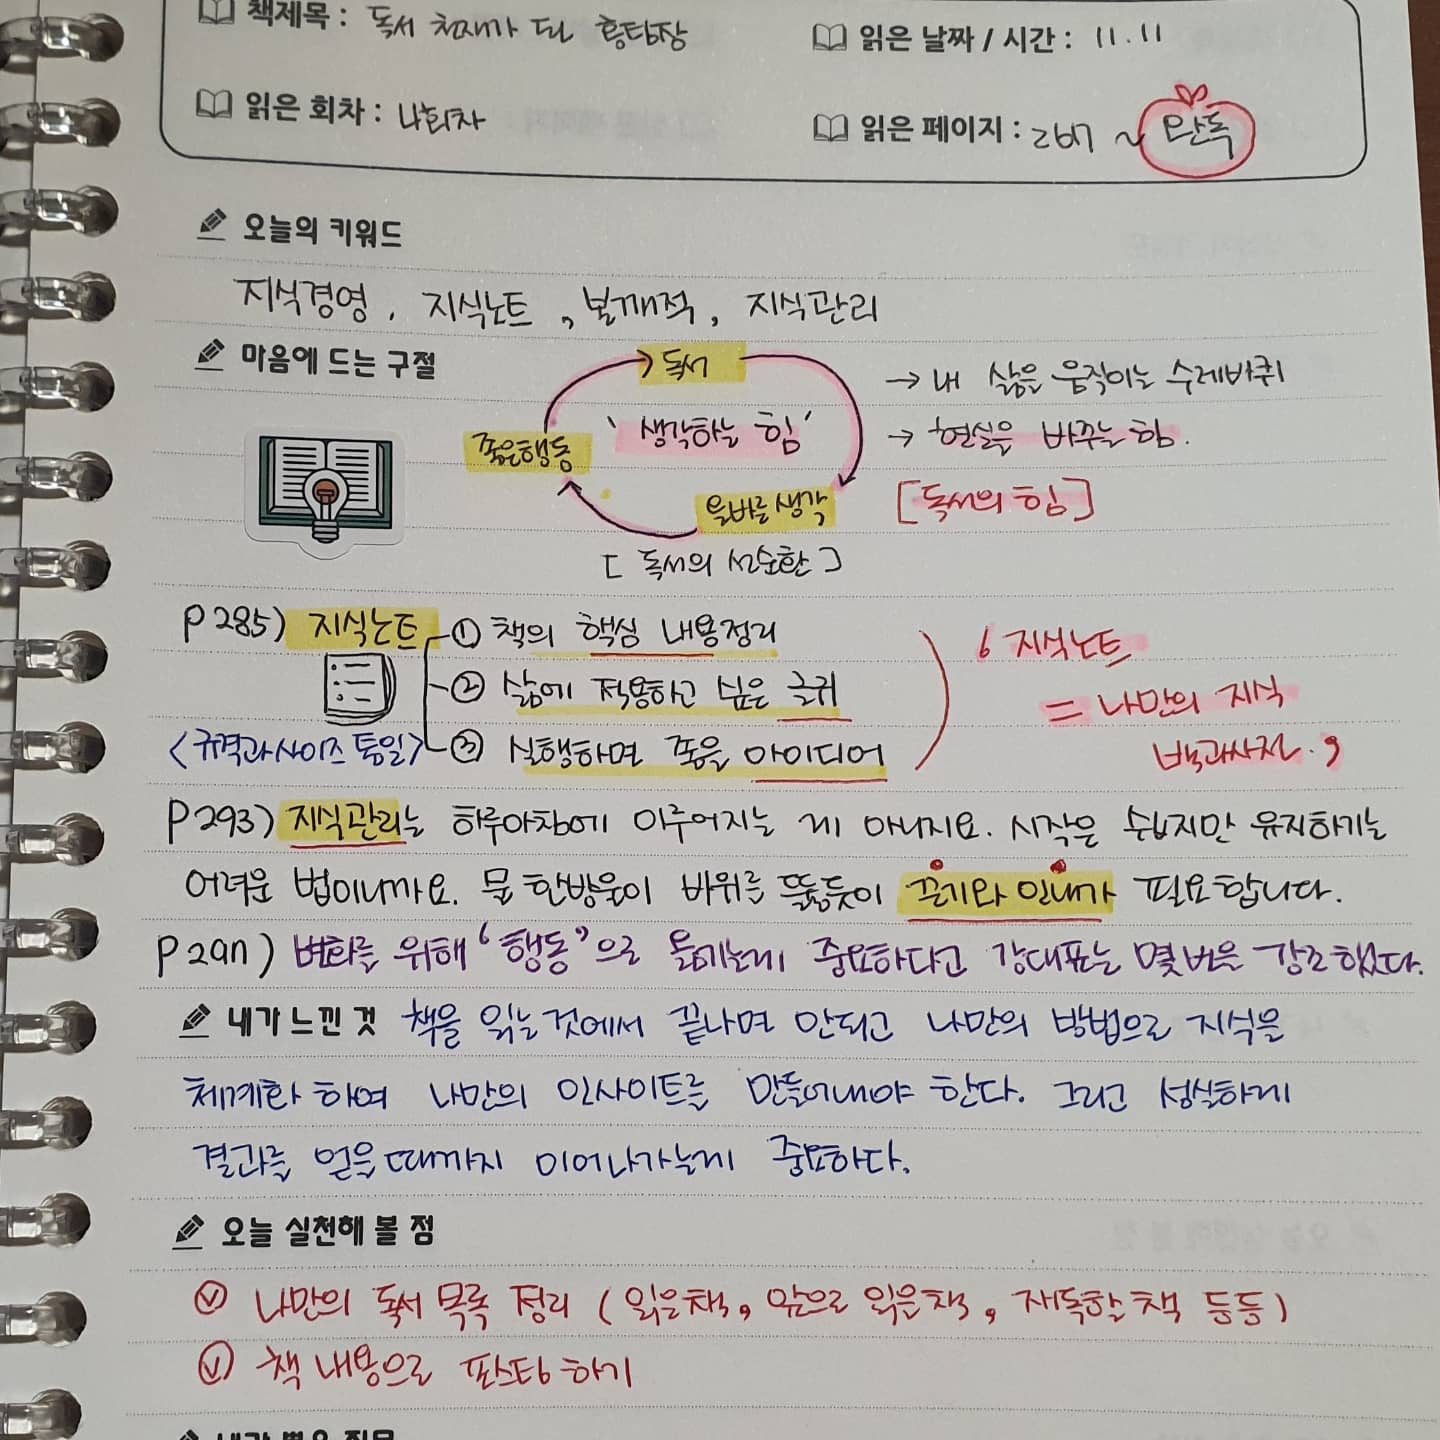 책제목 : 독서 천재가 된 홍팀장
읽은 날짜 / 시간 : 11.11
읽은 회차 : 4회차
읽은 페이지 : 267 ~ 완독
오늘의 키워드
지식경영, 지식노트, 본깨적, 지식관리
마음에 드는 구절
독서
→ 내 삶을 움직이는 수레바퀴
'생각하는 힘'
→ 현실을 바꾸는 힘.
좋은행동
올바른생각
[독서의 힘]
[독서의 선순환]
P285) 지식노트 ① 책의 핵심 내용정리
② 삶에 적용하고 싶은 글귀
<규격과 사이즈 통일> ③ 실행하면 좋을 아이디어
' 지식노트
= 나만의 지식
백과사전. '
P293) 지식관리는 하루아침에 이루어지는 게 아니지요. 시작은 쉽지만 유지하기는
어려운 법이니까요. 물 한방울이 바위를 뚫듯이 끈기와 인내가 필요합니다.
P297) 변화를 위해 "행동"으로 옮기는게 중요하다고 강대표는 몇번을 강조했다.
내가 느낀 것 책을 읽는것에서 끝나면 안되고 나만의 방법으로 지식을
체계화 하여 나만의 인사이트를 만들어내야 한다. 그리고 성실하게
결과를 얻을때까지 이어나가는게 중요하다.
오늘 실천해 볼 점
나만의 독서 목록 정리 (읽은책, 앞으로 읽은책, 재독할 책 등등)
책 내용으로 포스팅 하기